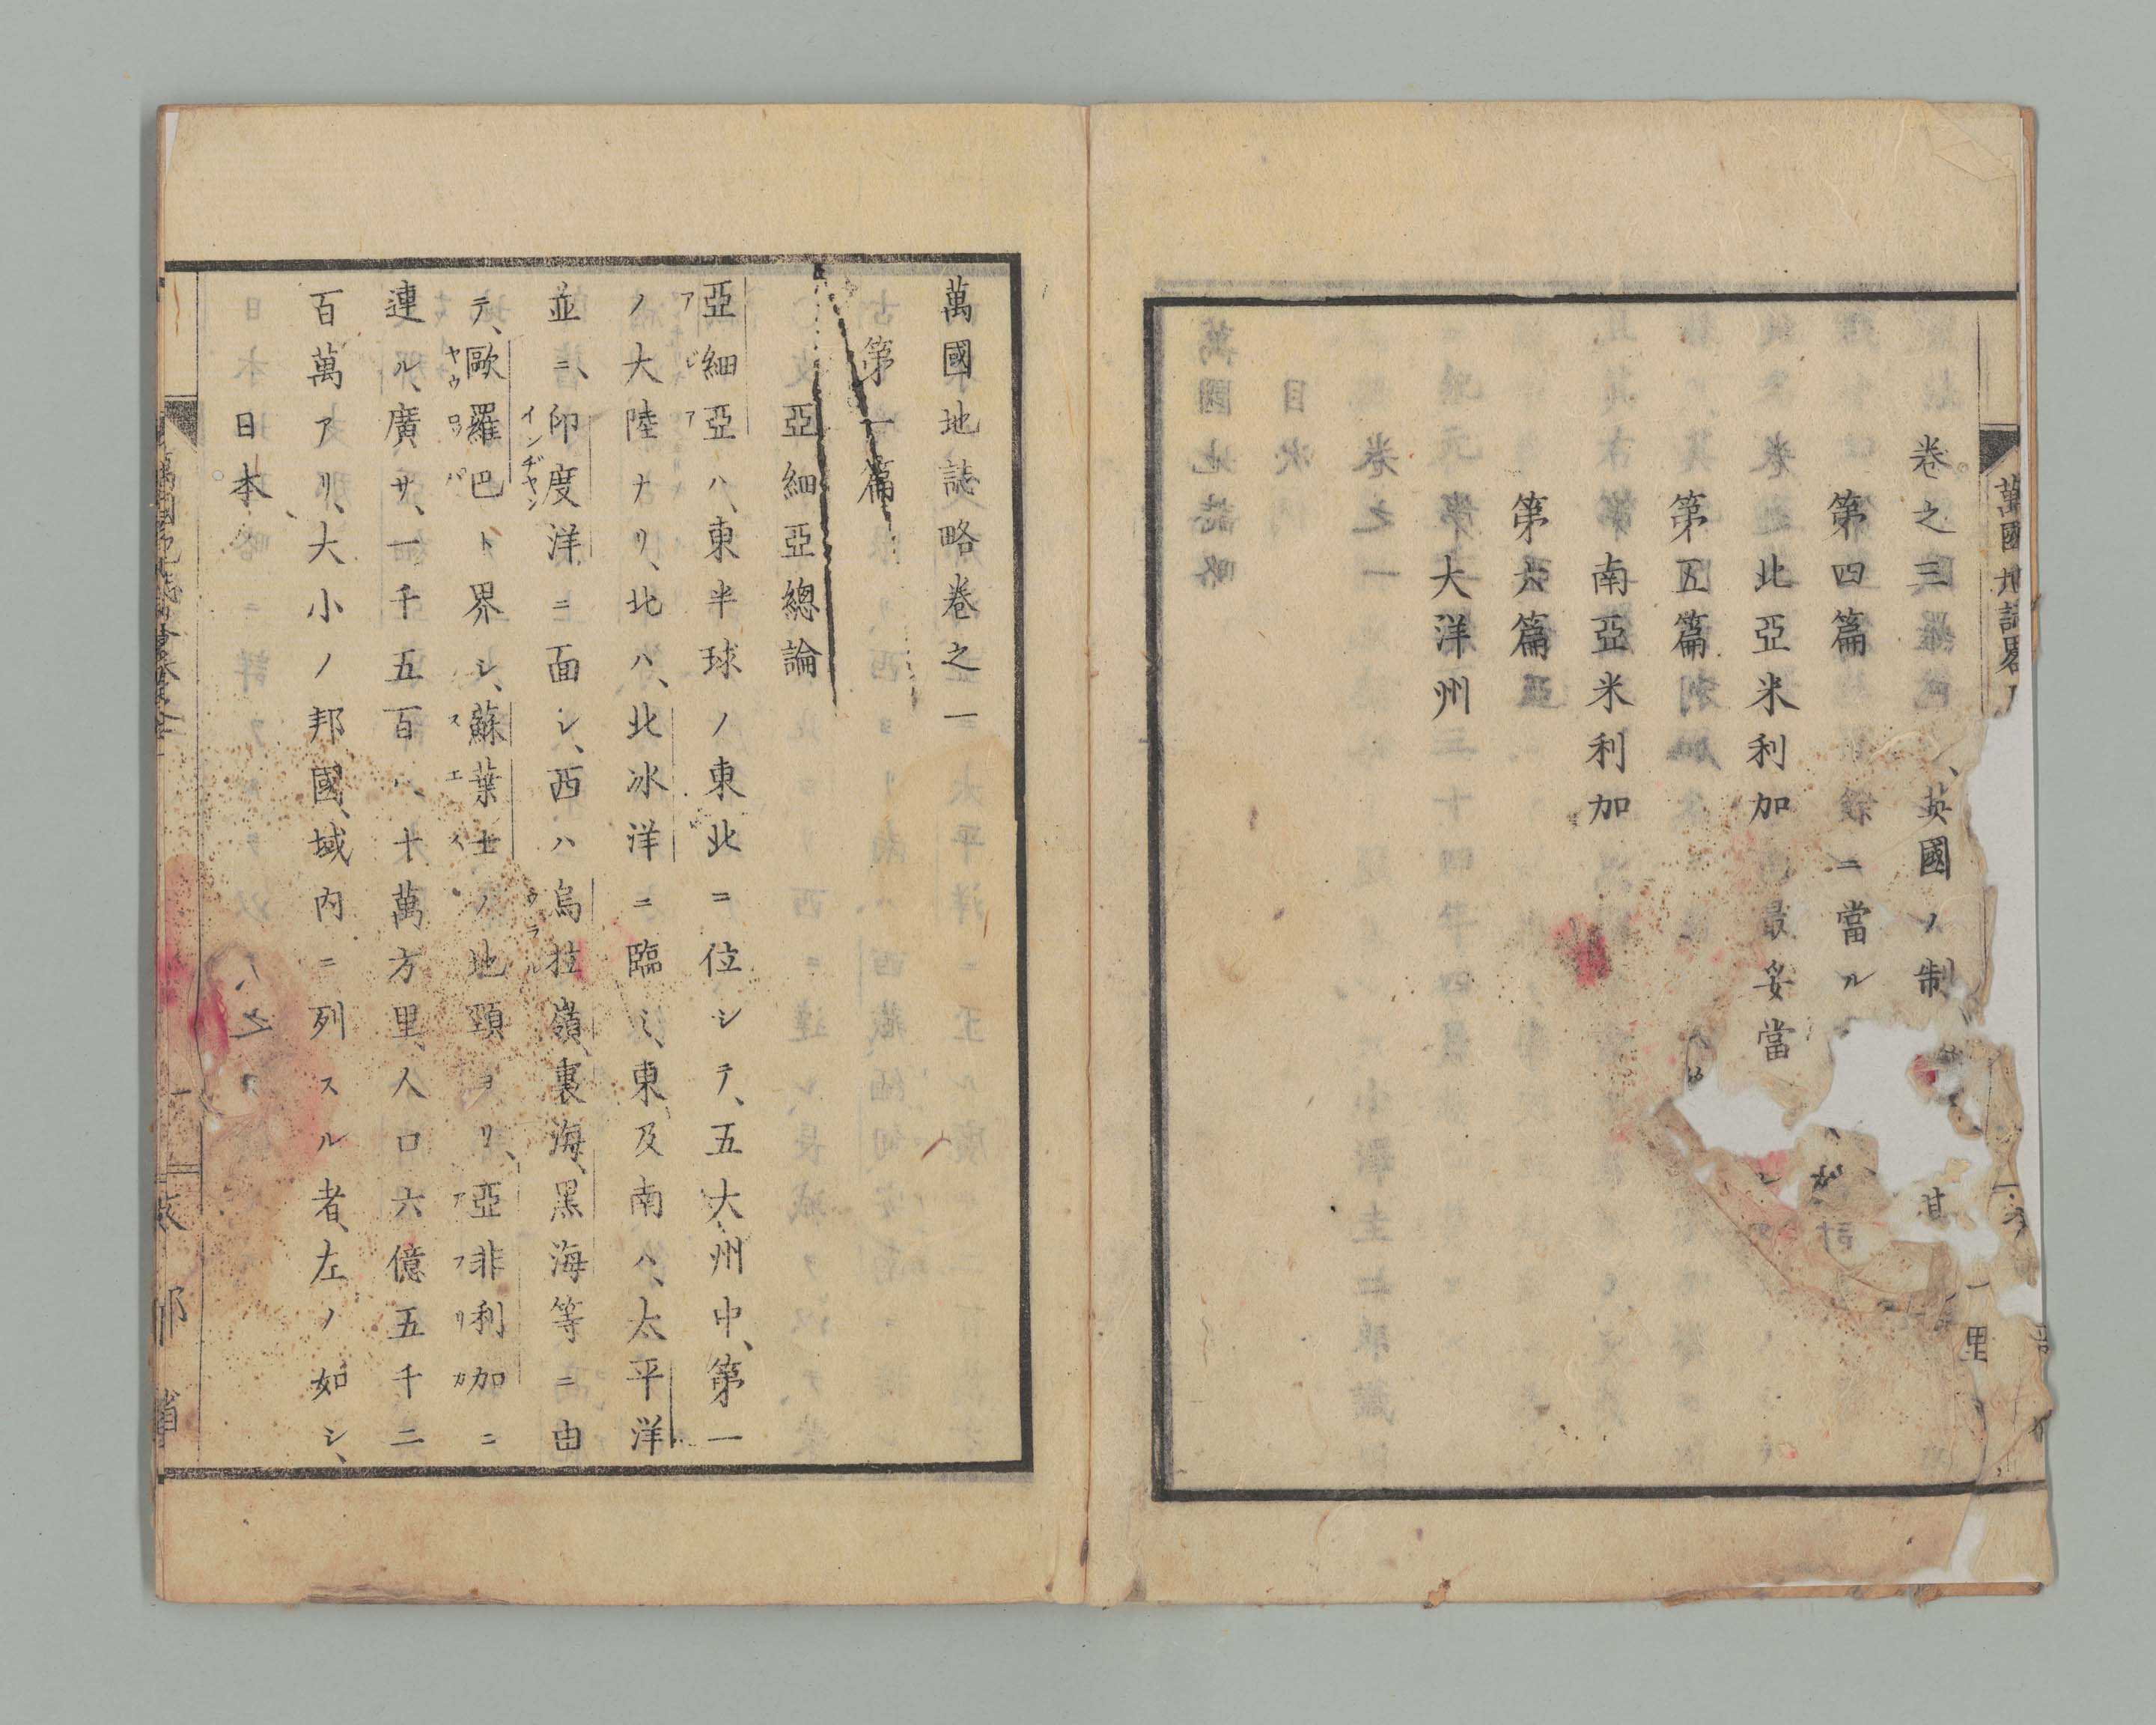 卷之三
第四篇
北亞米利加
第五篇
南亞米利加
第六篇
大洋州
英國ノ制
ニ當ル
最妥當
萬國地誌略卷之一
第一篇
亞細亞總論
亞細亞ハ、東半球ノ東北ニ位シテ、五大州中、第一
アジア
ノ大陸ナリ、北ハ、北冰洋ニ臨ミ、東及南ハ、太平洋
並ニ、印度洋ニ面シ、西ハ烏拉嶺、裏海、黑海等ニ由
インヂヤン
ウラル
テ、歐羅巴ト界シ、蘇葉士ノ地頸ヨリ、亞非利加ニ
ヤウロツパ
スエス
アフリカ
連ル、廣サ、一千五百八十萬方里、人口六億五千二
百萬アリ、大小ノ邦國、域内ニ列スル者、左ノ如シ、
日本